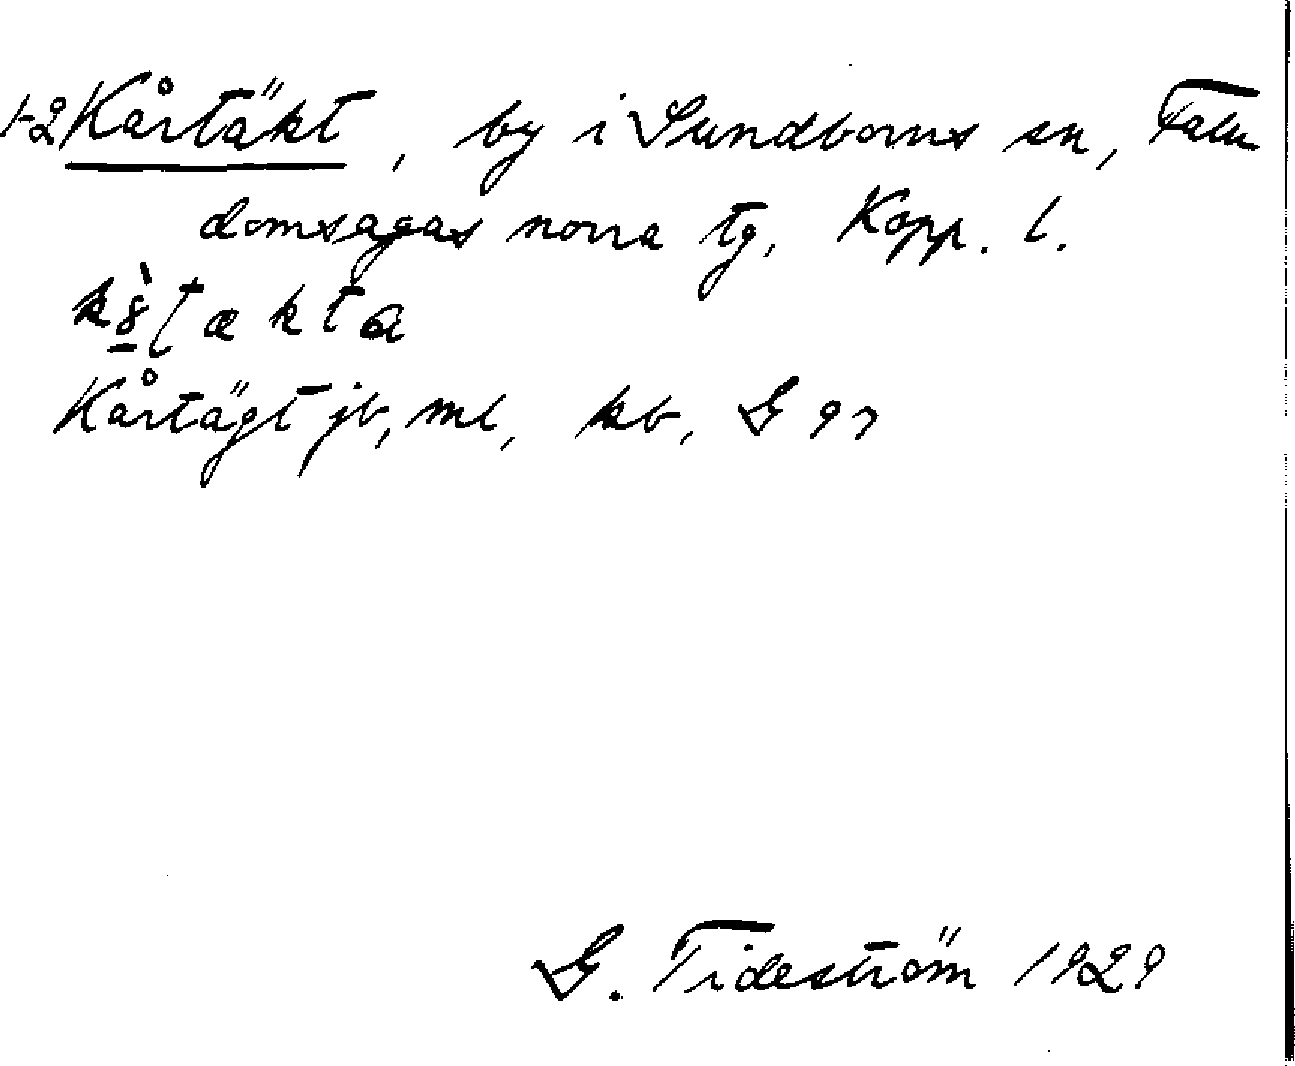 1-2 Kårtäkt, by i Sundborns sn, Falu
domsagas norra tg, Kopp. l.
Kårtägt jb, ml, kb, G 97
G. Tideström 1929